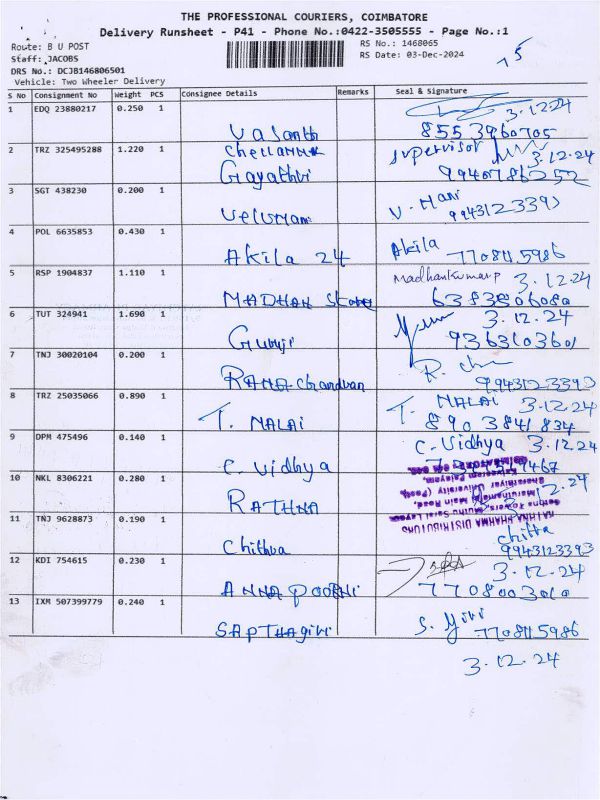 THE PROFESSIONAL COURIERS, COIMBATORE
Delivery Runsheet - P41 - Phone No.:0422-3505555 - Page No.:1
Route: B U POST
RS No.: 1468065
Staff: JACOBS
RS Date: 03-Dec-2024
DRS No.: DCJB146806501
Vehicle: Two Wheeler Delivery
S No Consignment No Weight PCS Consignee Details Remarks Seal & Signature
1 EDQ 23880217 0.250 1 3.12.24
Vasanth 8553960705
2 TRZ 325495288 1.220 1 Chellamma Supervisor 3.12.24
Gayathri 9940786252
3 SGT 438230 0.200 1 V. Mani
Velumani 9943123393
4 POL 6635853 0.430 1 Akila
Akila 24 7708115986
5 RSP 1904837 1.110 1 Madhankumar P 3.12.24
MADHAN Store 6383806080
6 TUT 324941 1.690 1 3.12.24
Guruji 9363103601
7 TNJ 30020104 0.200 1 R.
RAMAchandran 9943123393
8 TRZ 25035066 0.890 1 T. MALAI 3.12.24
T. MALAI 8903841834
9 DPM 475496 0.140 1 C. Vidhya 3.12.24
C. Vidhya
10 NKL 8306221 0.280 1 12.24
RATHNA
RATHNA PHARMA DISTRIBUTORS
11 TNJ 9628873 0.190 1 chitta
Chithra 9943123393
12 KDI 754615 0.230 1 3.12.24
ANNAPOORNI 7708003010
13 IXM 507399779 0.240 1 S. Giri
SAPTHAgiri 7708115986
3.12.24